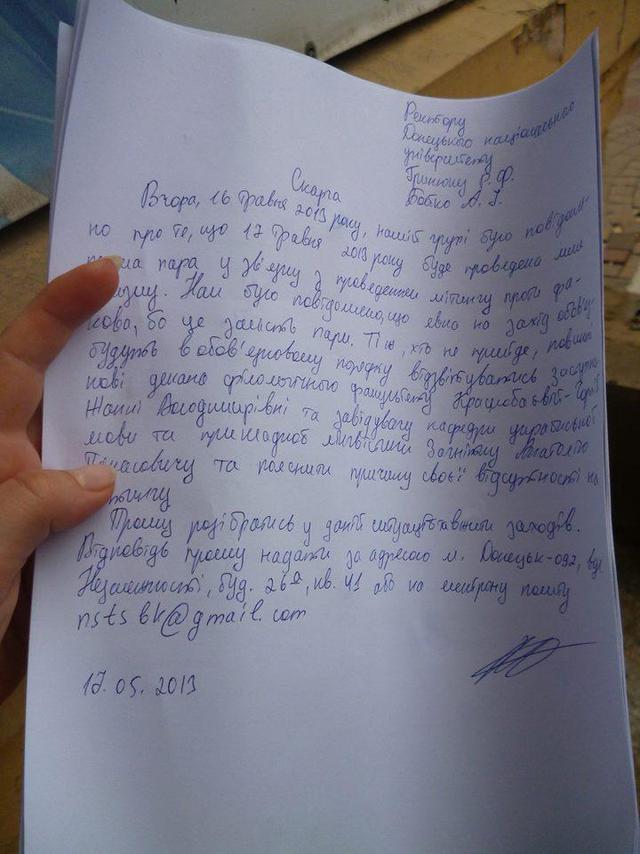 Ректору
Донецького національного
університету
Гринюку Р. Ф.
Бабко А. Г.
Скарга
Вчора, 16 травня 2013 року, нашій групі було повідомле-
но про те, що 17 травня 2013 року буде проведена лише
пара у зв'язку з проведенням мітингу проти фа-
шизму. Нам було повідомлено, що явка на захід обов'яз-
кова, бо це замість пари. Ті ж, хто не прийде, повинні
будуть в обов'язковому порядку відзвітуватись заступни-
кові декана філологічного факультету
Жанні Володимирівні та завідувачу кафедри української
мови та прикладної лінгвістики Загнітку Анатолію
Панасовичу та пояснити причину своєї відсутності на
мітингу
Прошу розібратись у даній ситуації та вжити заходів.
Відповідь прошу надати за адресою м. Донецьк-092, вул.
Незалежності, буд. 26а, кв. 41 або на електрону пошту
nstsbk@gmail.com
17.05.2013